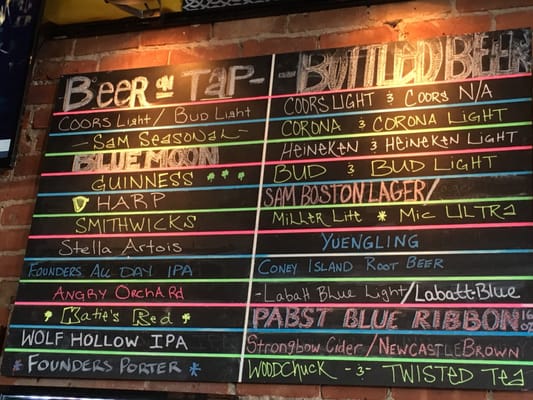 Beer on Tap-
Coors Light/Bud Light
-Sam Seasonal-
Blue Moon
Guinness
Harp
Smithwicks
Stella Artois
Founders All Day IPA
Angry Orchard
Katie's Red
Wolf Hollow IPA
*Founders Porter*
-Bottled Beer
Coors Light & Coors N/A
Corona & Corona Light
Heineken & Heineken Light
Bud & Bud Light
Sam Boston Lager/
Miller Lite * Mic Ultra
Yuengling
Coney Island Root Beer
-Labatt Blue Light/Labatt-Blue
Pabst Blue Ribbon 16oz
Strongbow Cider/Newcastle Brown
Woodchuck -&- Twisted Tea